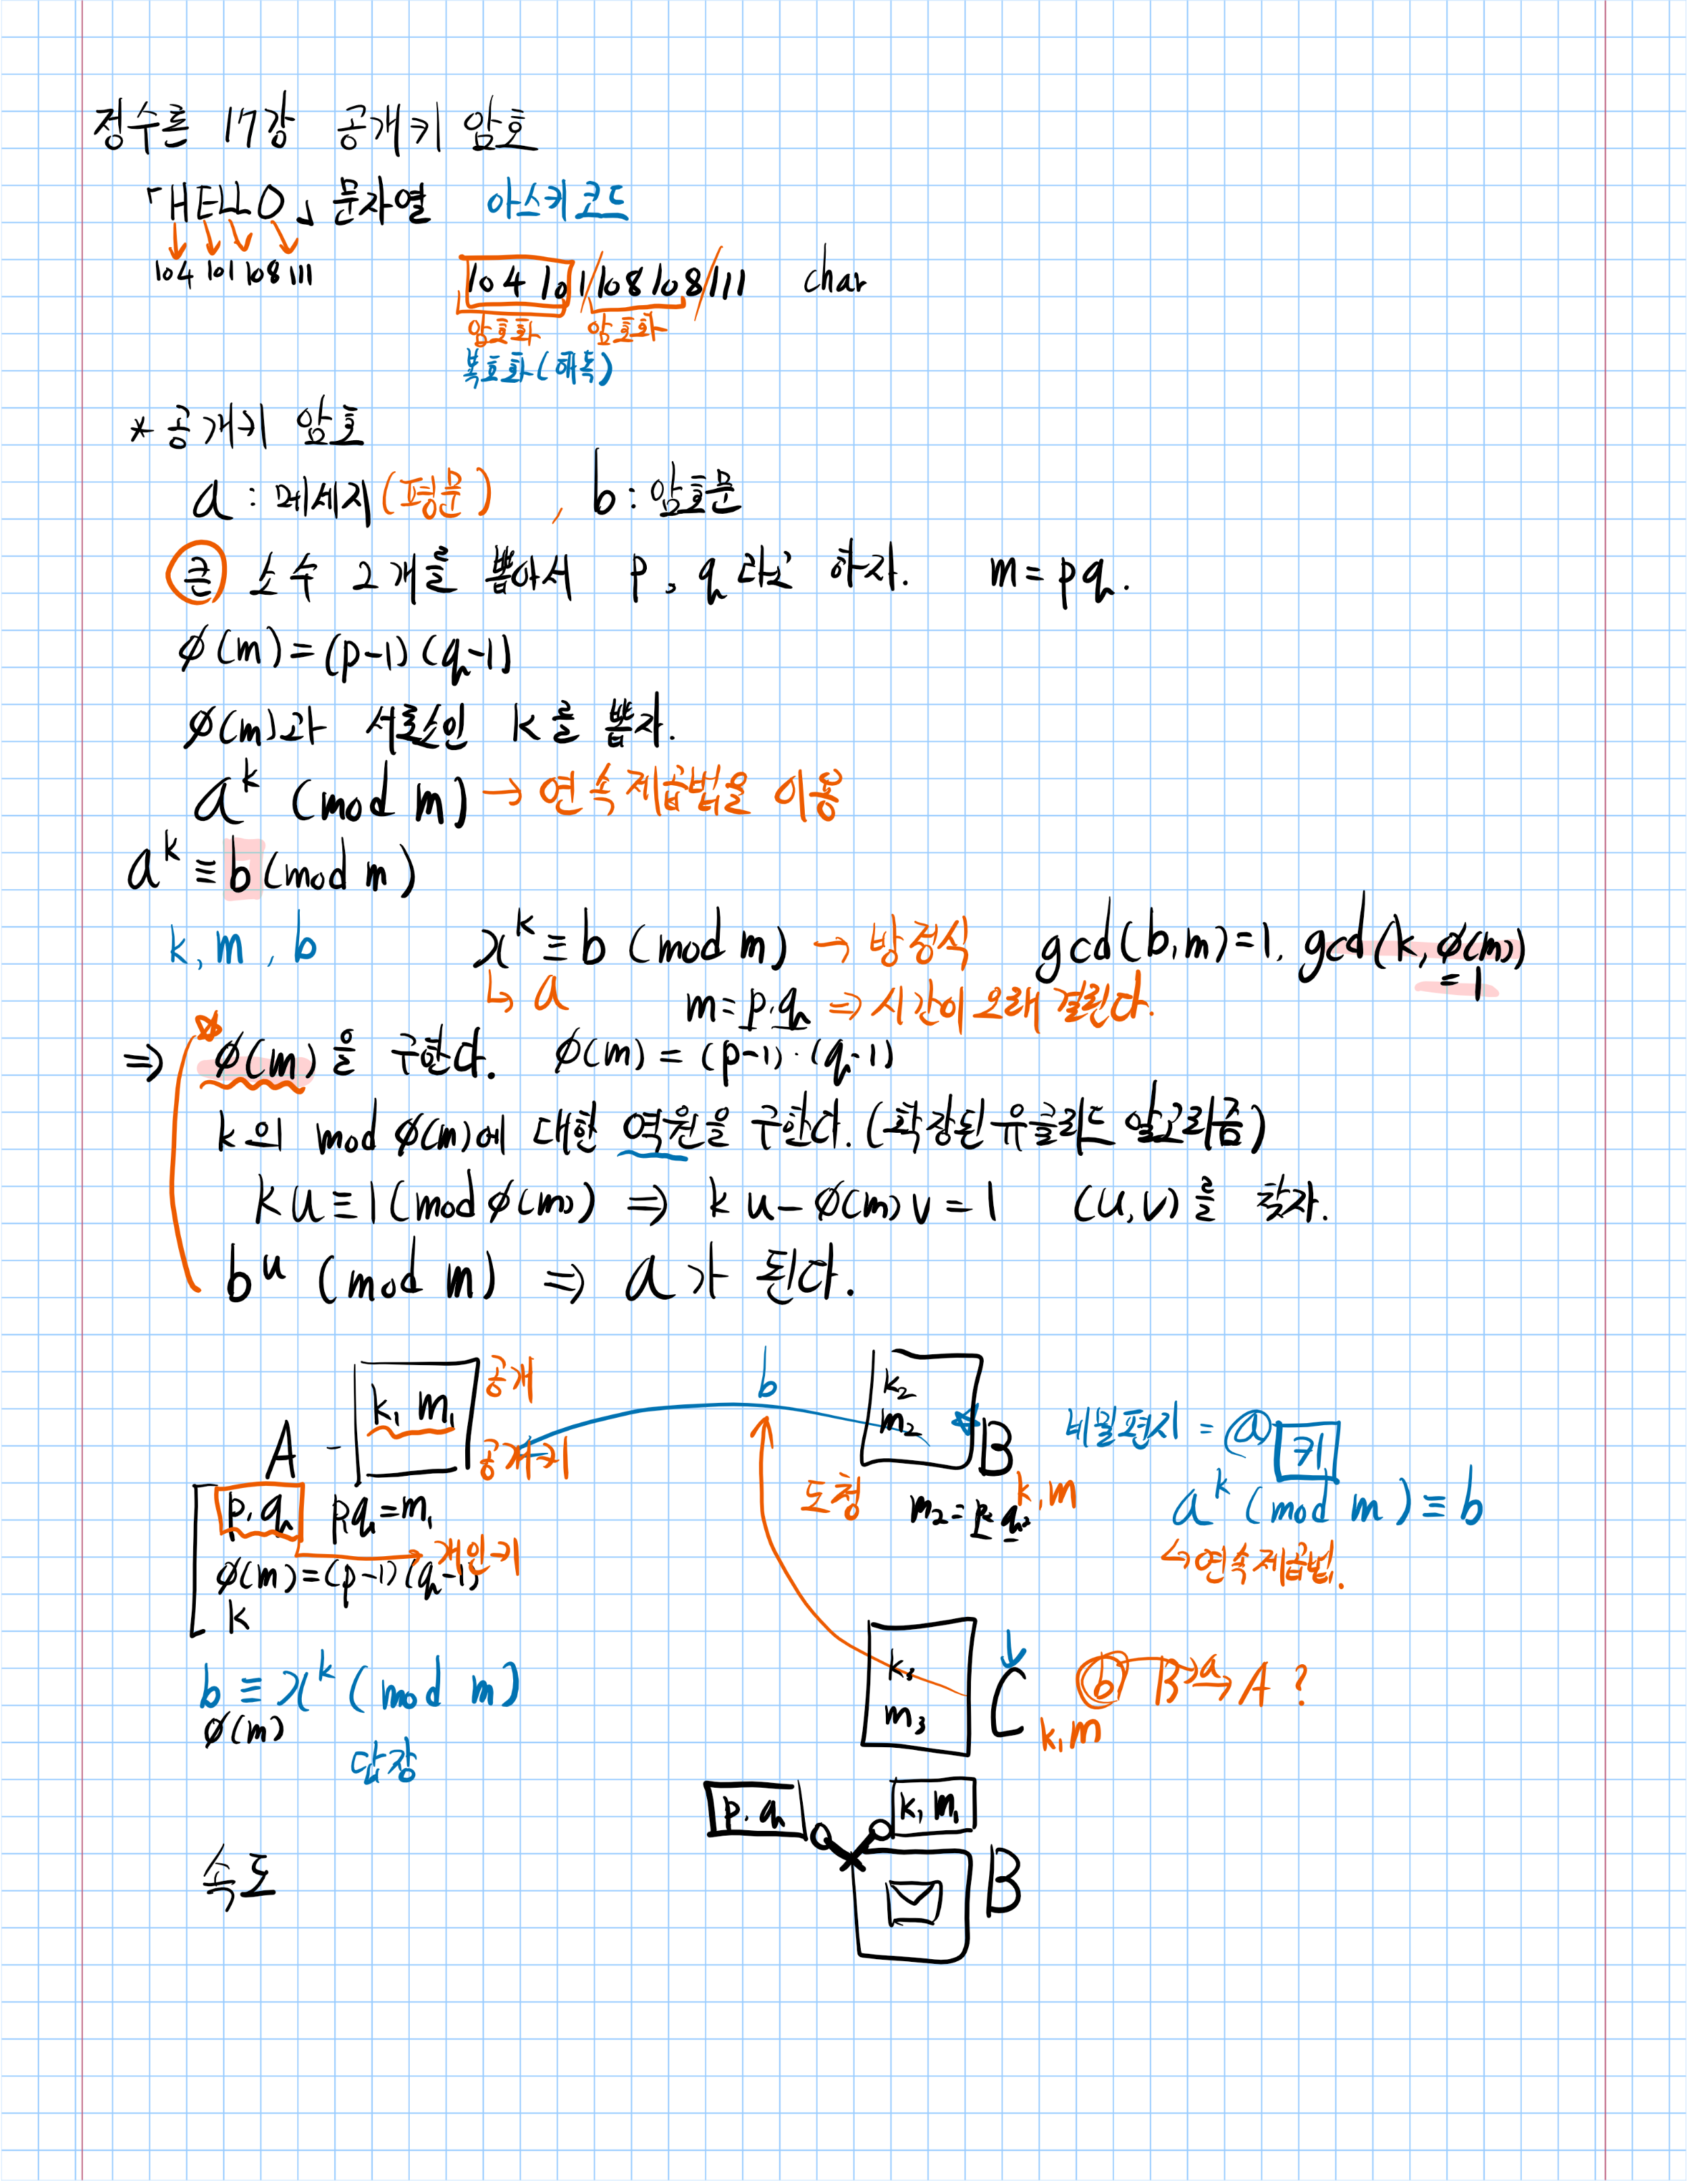 정수론 17강 공개키 암호
「HELLO」 문자열 아스키코드
104 101 108 111
104 101/108 108/111 char
암호화 암호화
복호화(해독)
* 공개키 암호
a : 메세지(평문) , b : 암호문
큰 소수 2개를 뽑아서 p, q 라고 하자. m = pq.
ϕ(m) = (p-1)(q-1)
ϕ(m)과 서로소인 k를 뽑자.
a^k (mod m) → 연속제곱법을 이용
a^k ≡ b (mod m)
k, m, b x^k ≡ b (mod m) → 방정식 gcd(b,m)=1, gcd(k, ϕ(m)) = 1
↳ a m = p·q ⇒ 시간이 오래 걸린다.
⇒ ☆ϕ(m)을 구한다. ϕ(m) = (p-1)·(q-1)
k의 mod ϕ(m)에 대한 역원을 구한다. (확장된 유클리드 알고리즘)
ku ≡ 1 (mod ϕ(m)) ⇒ ku - ϕ(m)v = 1 (u,v)를 찾자.
b^u (mod m) ⇒ a가 된다.
A - k₁ m₁ 공개
공개키
b
k₂
m₂ ☆ B
비밀편지 = ⓐ 키
p, q pq = m₁
도청 m₂ = p₂ q₂ k, m
a^k (mod m) ≡ b
개인키
↳ 연속제곱법.
ϕ(m) = (p-1)(q-1)
k
b ≡ x^k (mod m)
ϕ(m)
답장
k₃
m₃ ↓ C k, m
ⓑ B →a→ A ?
p, q k₁ m₁
속도 B